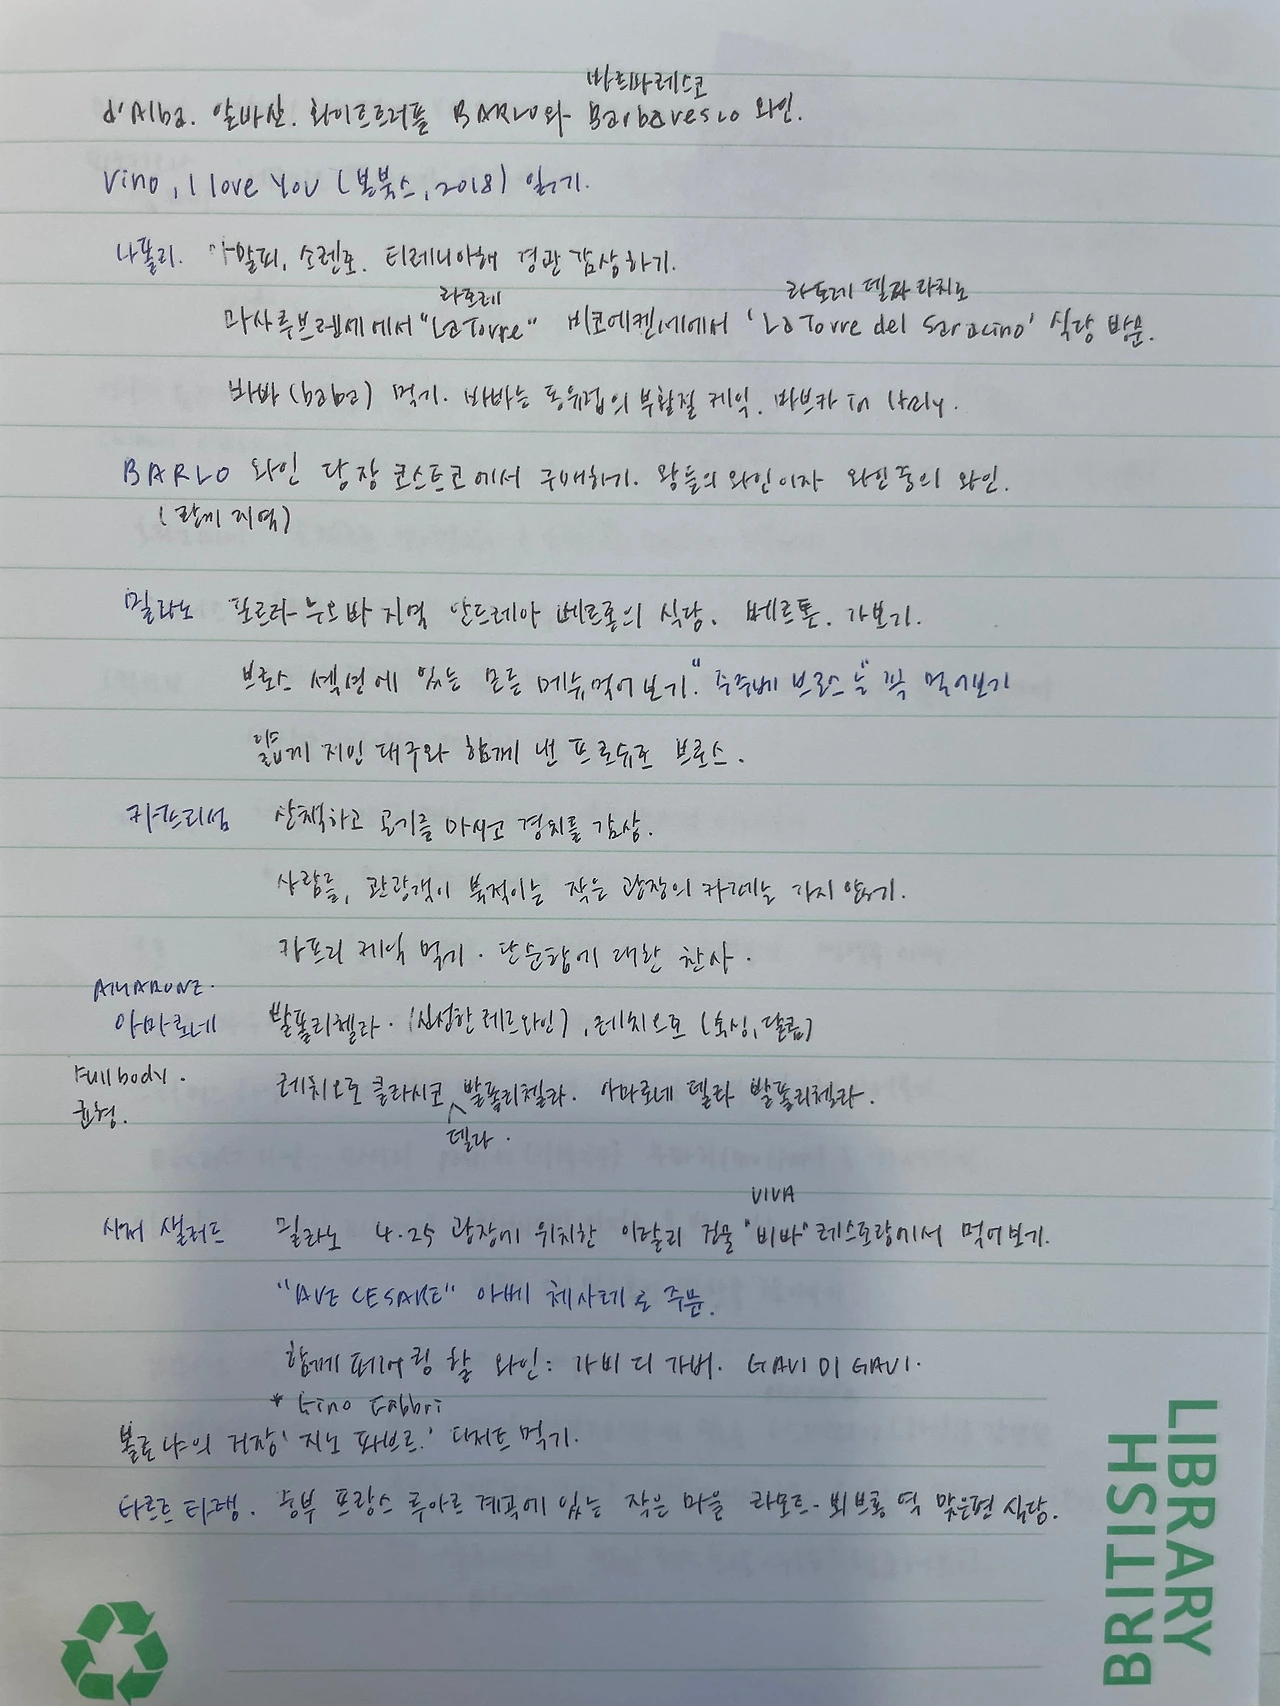 바르바레스코
d'Alba. 알바산. 화이트트러플 BARLO와 Barbaresco 와인.
Vino, I love You (본북스, 2018) 읽기.
나폴리. 아말피, 소렌토. 티레니아해 경관 감상하기.
라토레 라토레 델 라치노
마사루브렌세에서 "La Torre" 비코에켄세에서 'La Torre del Saracino' 식당 방문.
바바 (baba) 먹기. 바바는 동유럽의 부활절 케익. 바브카 in Italy.
BARLO 와인 당장 코스트코에서 구매하기. 왕들의 와인이자 와인중의 와인.
(랑게 지역)
밀라노 포르타-누오바 지역 안드레아 베르톤의 식당. 베르톤. 가보기.
브로스 섹션에 있는 모든 메뉴 먹어보기. "주주베 브로스"는 꼭 먹어보기
얇게 저민 대구와 함께 낸 프로슈토 브로스.
카프리섬 산책하고 공기를 마시고 경치를 감상.
사람들, 관광객이 북적이는 작은 광장의 카페는 가지 않기.
카프리 케익 먹기. 단순함에 대한 찬사.
AMARONE.
아마로네 발폴리첼라. (신성한 레드와인), 레치오토 (숙성, 달콤)
Full body.
균형.
레치오토 클라시코 발폴리첼라. 아마로네 델라 발폴리첼라.
델라.
VIVA
시저 샐러드 밀라노 4.25 광장에 위치한 이탈리 건물 "비바" 레스토랑에서 먹어보기.
"AVE CESARE" 아베 체사레로 주문.
함께 페어링 할 와인: 가비 디 가비. GAVI DI GAVI.
* Gino Fabbri
볼로냐의 거장 '지노 파브르.' 디저트 먹기.
타르트 타탱. 중부 프랑스 루아르 계곡에 있는 작은 마을 라모트-뵈브롱 역 맞은편 식당.
BRITISH
LIBRARY